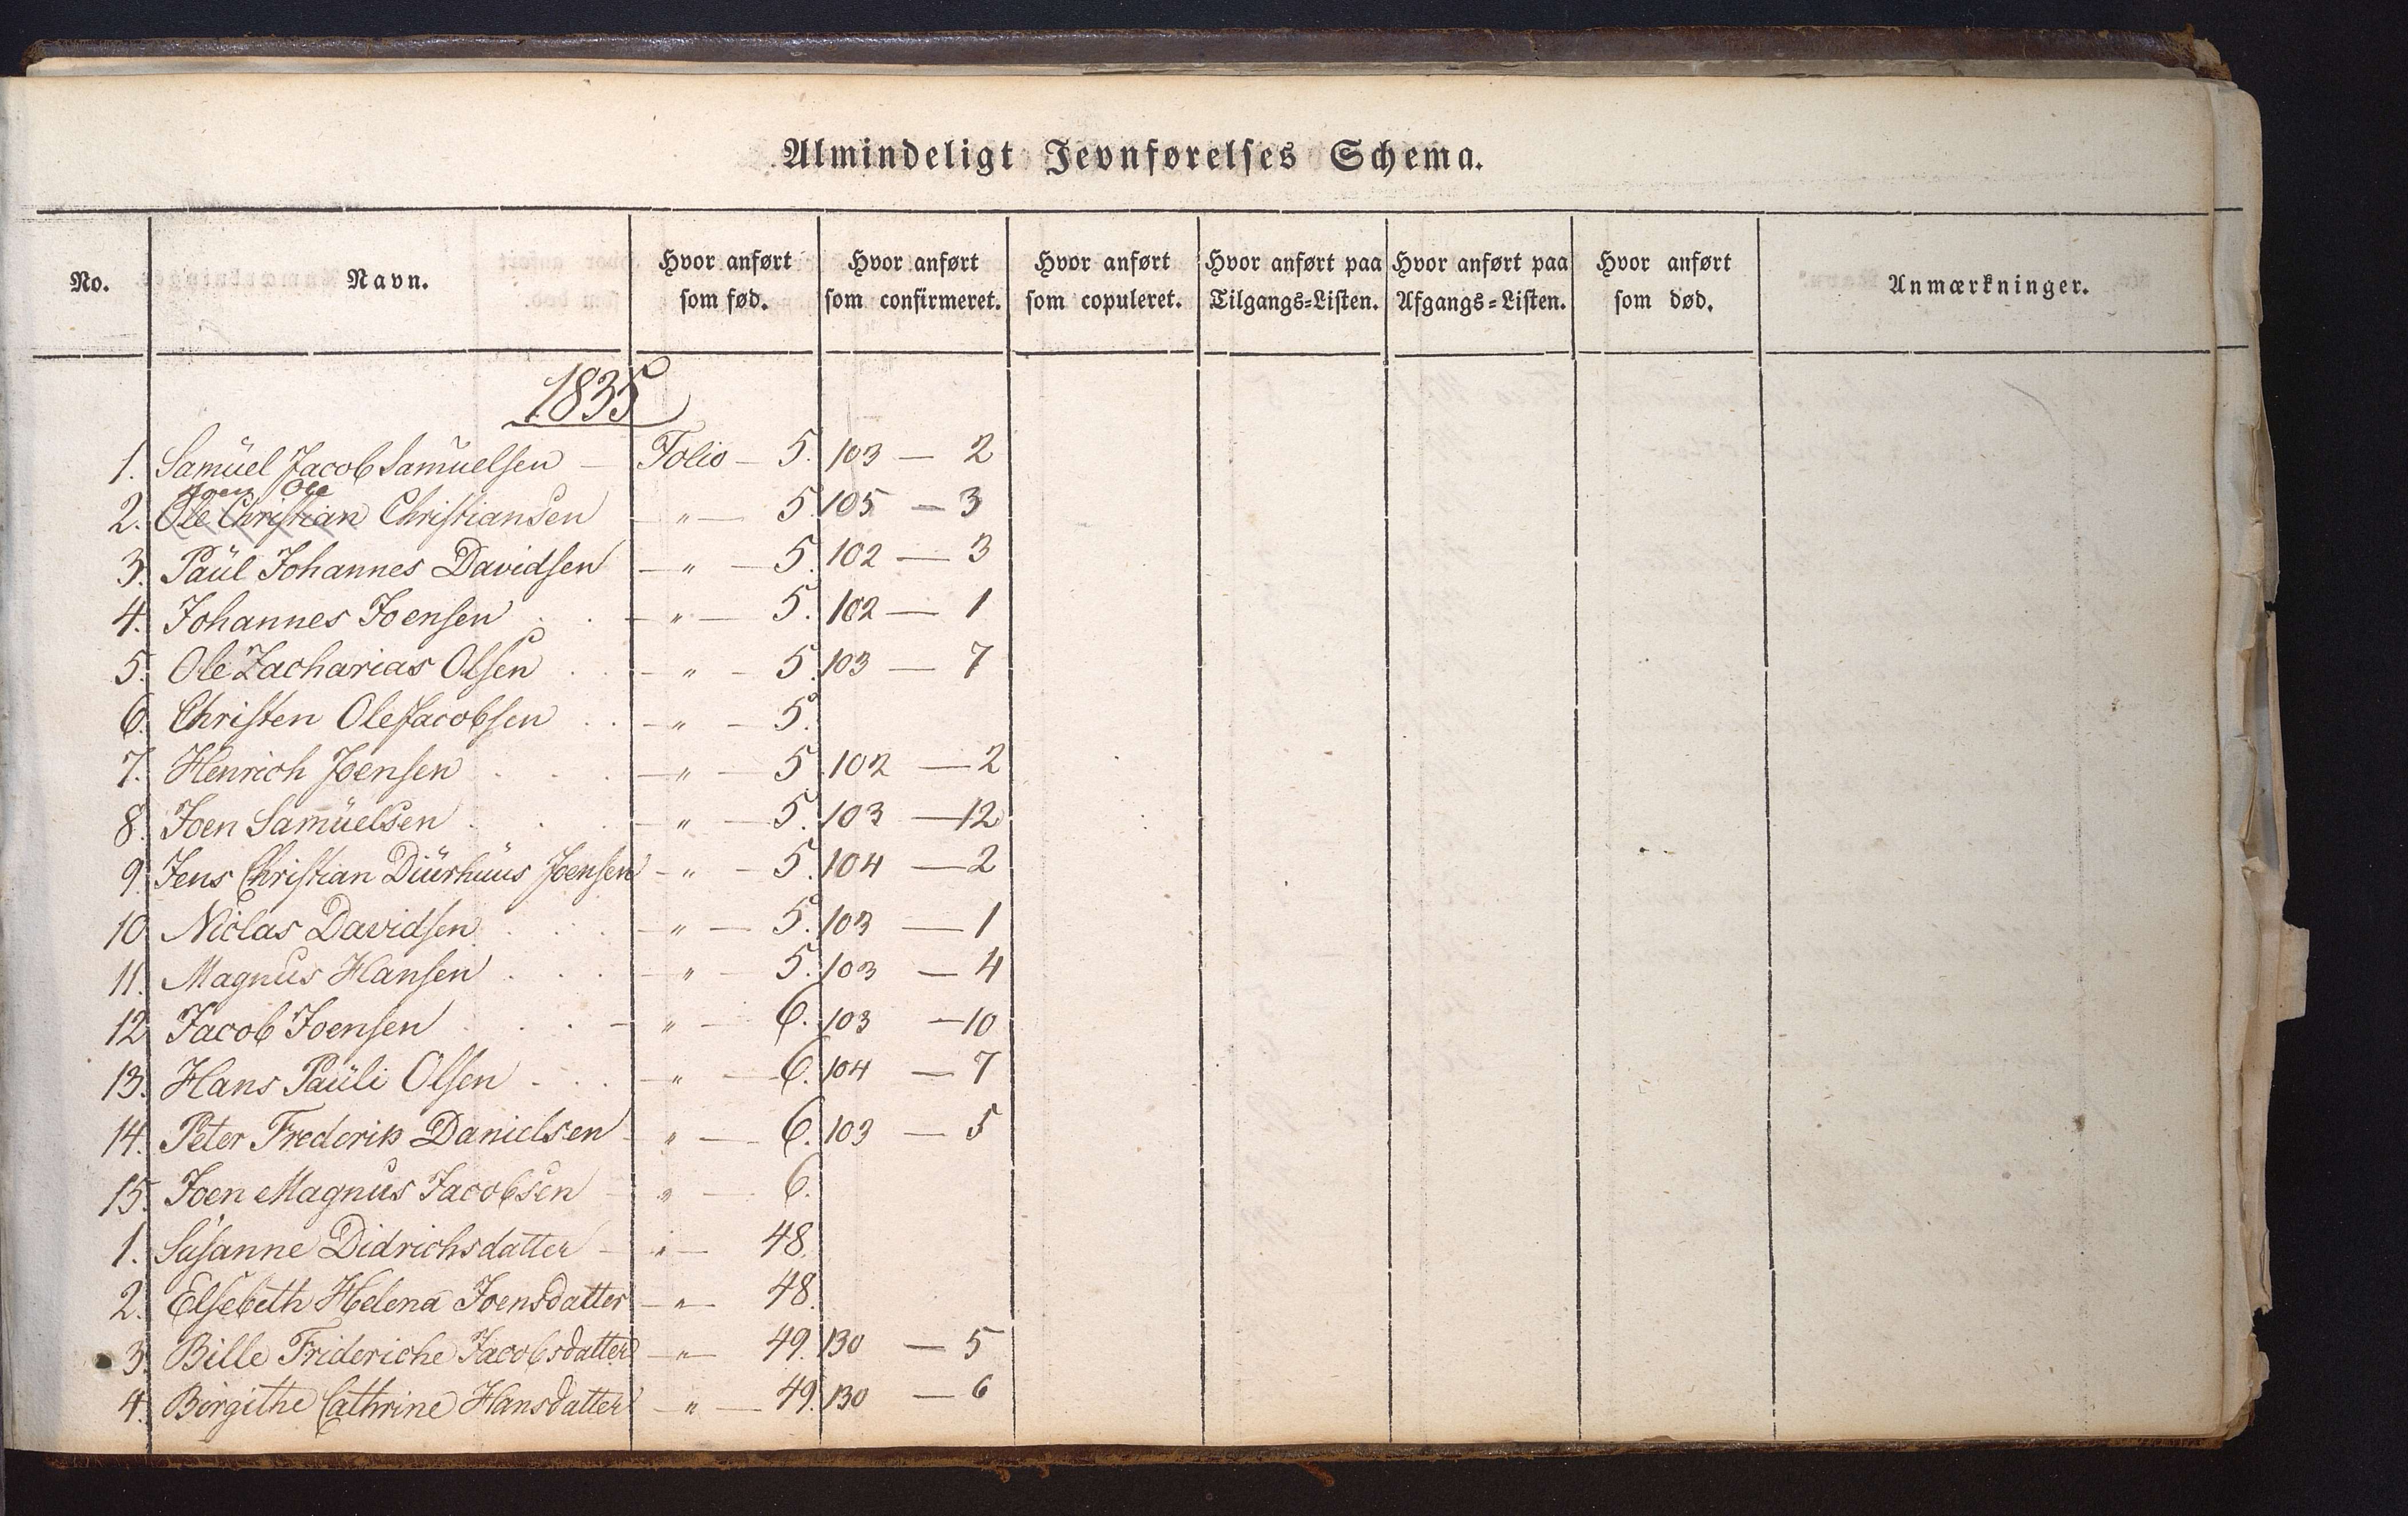 Almindeligt Jevnførelses Schema.
No. Navn. Hvor anført som fød. Hvor anført som confirmeret. Hvor anført som copuleret. Hvor anført paa Tilgangs-Listen. Hvor anført paa Afgangs-Listen. Hvor anført som død. Anmærkninger.
1835
1. Samüel Jacob Samuelsen — Folio — 5. 103 — 2
Joen Ole
2. Ole Christian Christiansen — " — 5. 105 — 3
3. Paül Johannes Davidsen — " — 5. 102 — 3
4. Johannes Joensen . . — " — 5. 102 — 1
5. Ole Zacharias Olsen . . — " — 5. 103 — 7
6. Christen Ole Jacobsen . . — " — 5.
7. Henrich Joensen . . . — " — 5. 102 — 2
8. Joen Samüelsen . . . — " — 5. 103 — 12
9. Jens Christian Diürhüüs Joensen — " — 5. 104 — 2
10. Niclas Davidsen . . . — " — 5. 103 — 1
11. Magnus Hansen . . . — " — 5. 103 — 4
12. Jacob Joensen . . . — " — 6. 103 — 10
13. Hans Paüli Olsen . . . — " — 6. 104 — 7
14. Peter Frederik Danielsen — " — 6. 103 — 5
15. Joen Magnus Jacobsen — " — 6.
1. Susanne Didrichsdatter — " — 48.
2. Elsebeth Helena Joensdatter — " — 48.
3. Bille Frideriche Jacobsdatter — " — 49. 130 — 5
4. Birgithe Cathrine Hansdatter — " — 49. 130 — 6